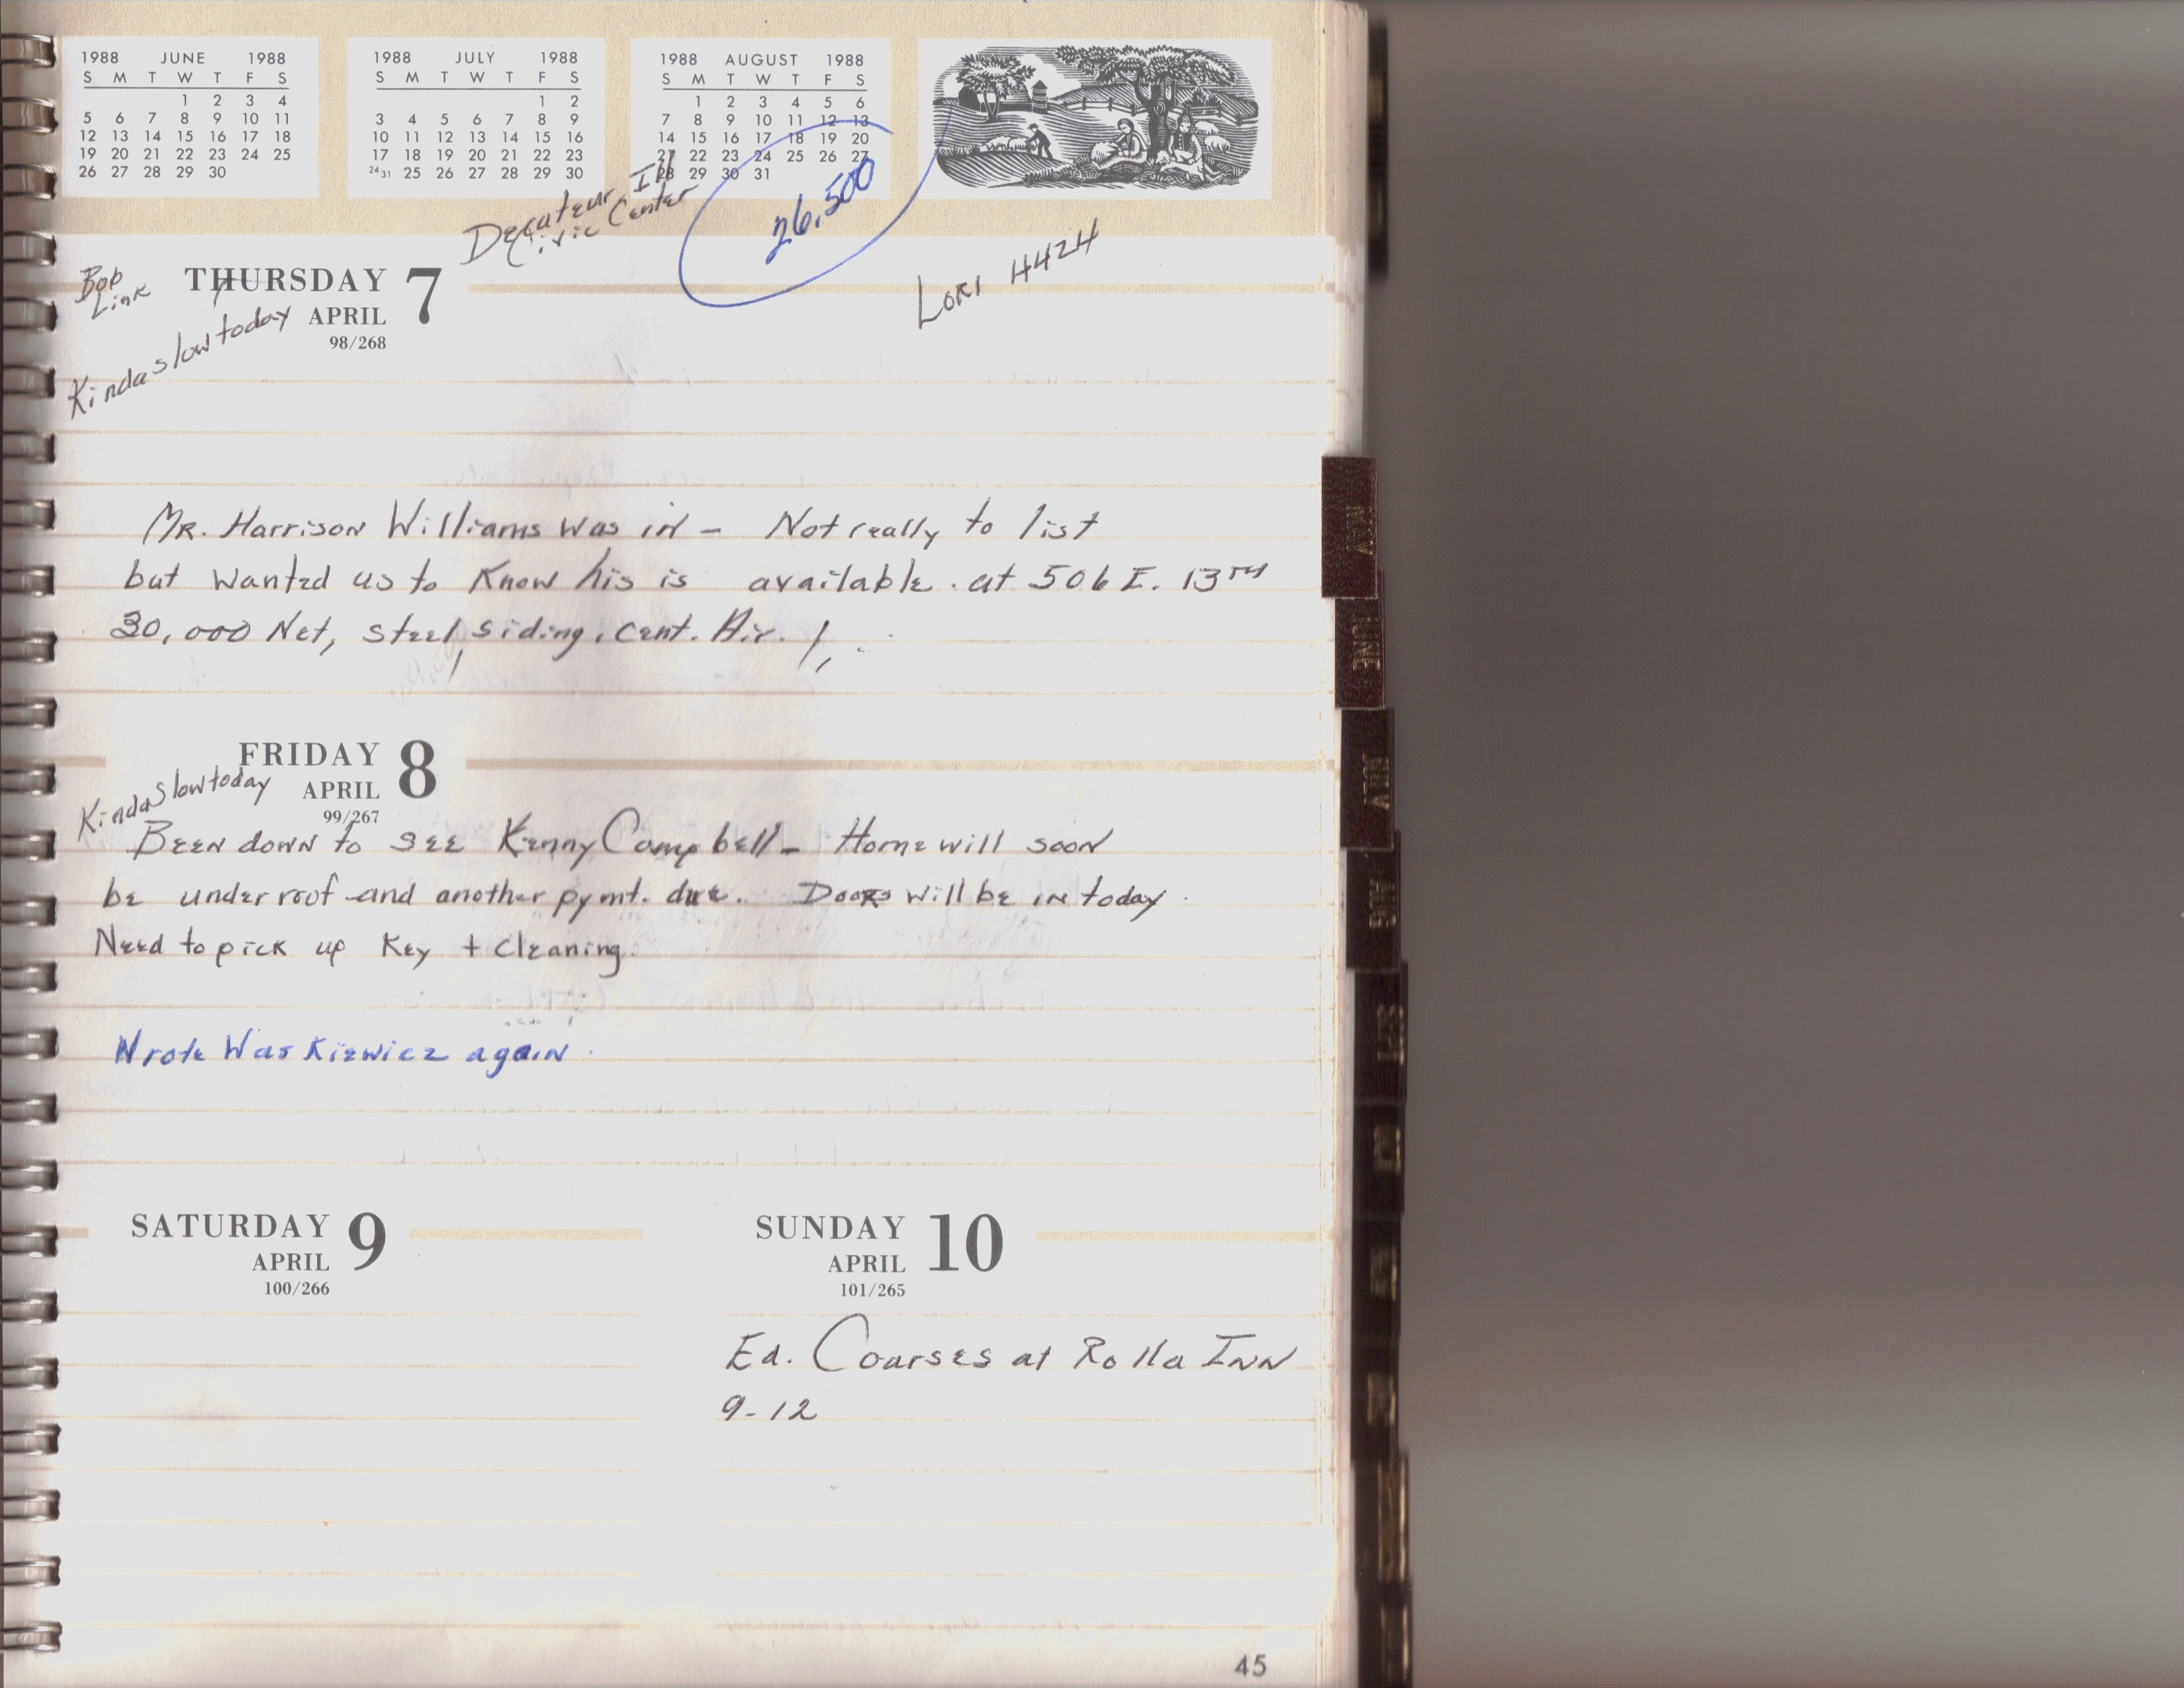 1988 JUNE 1988
S M T W T F S
1 2 3 4
5 6 7 8 9 10 11
12 13 14 15 16 17 18
19 20 21 22 23 24 25
26 27 28 29 30
1988 JULY 1988
S M T W T F S
1 2
3 4 5 6 7 8 9
10 11 12 13 14 15 16
17 18 19 20 21 22 23
24 31 25 26 27 28 29 30
1988 AUGUST 1988
S M T W T F S
1 2 3 4 5 6
7 8 9 10 11 12 13
14 15 16 17 18 19 20
21 22 23 24 25 26 27
28 29 30 31
Decateur Ill
Civic Center
26,500
LORI H424
Bob
Link
THURSDAY 7
APRIL
98/268
Kinda slow today
MR. Harrison Williams was in - Not really to list
but wanted us to know his is available. at 506 E. 13TH
30,000 Net, steel siding, cent. Air.
FRIDAY 8
APRIL
99/267
Kinda Slow today
Been down to see Kenny Campbell - Home will soon
be under roof and another pymt. due. Doors will be in today.
Need to pick up Key + cleaning.
Wrote Waskiewicz again.
SATURDAY 9
APRIL
100/266
SUNDAY 10
APRIL
101/265
Ed. Courses at Rolla Inn
9-12
45
MAY
JUNE
JULY
AUG
SEPT